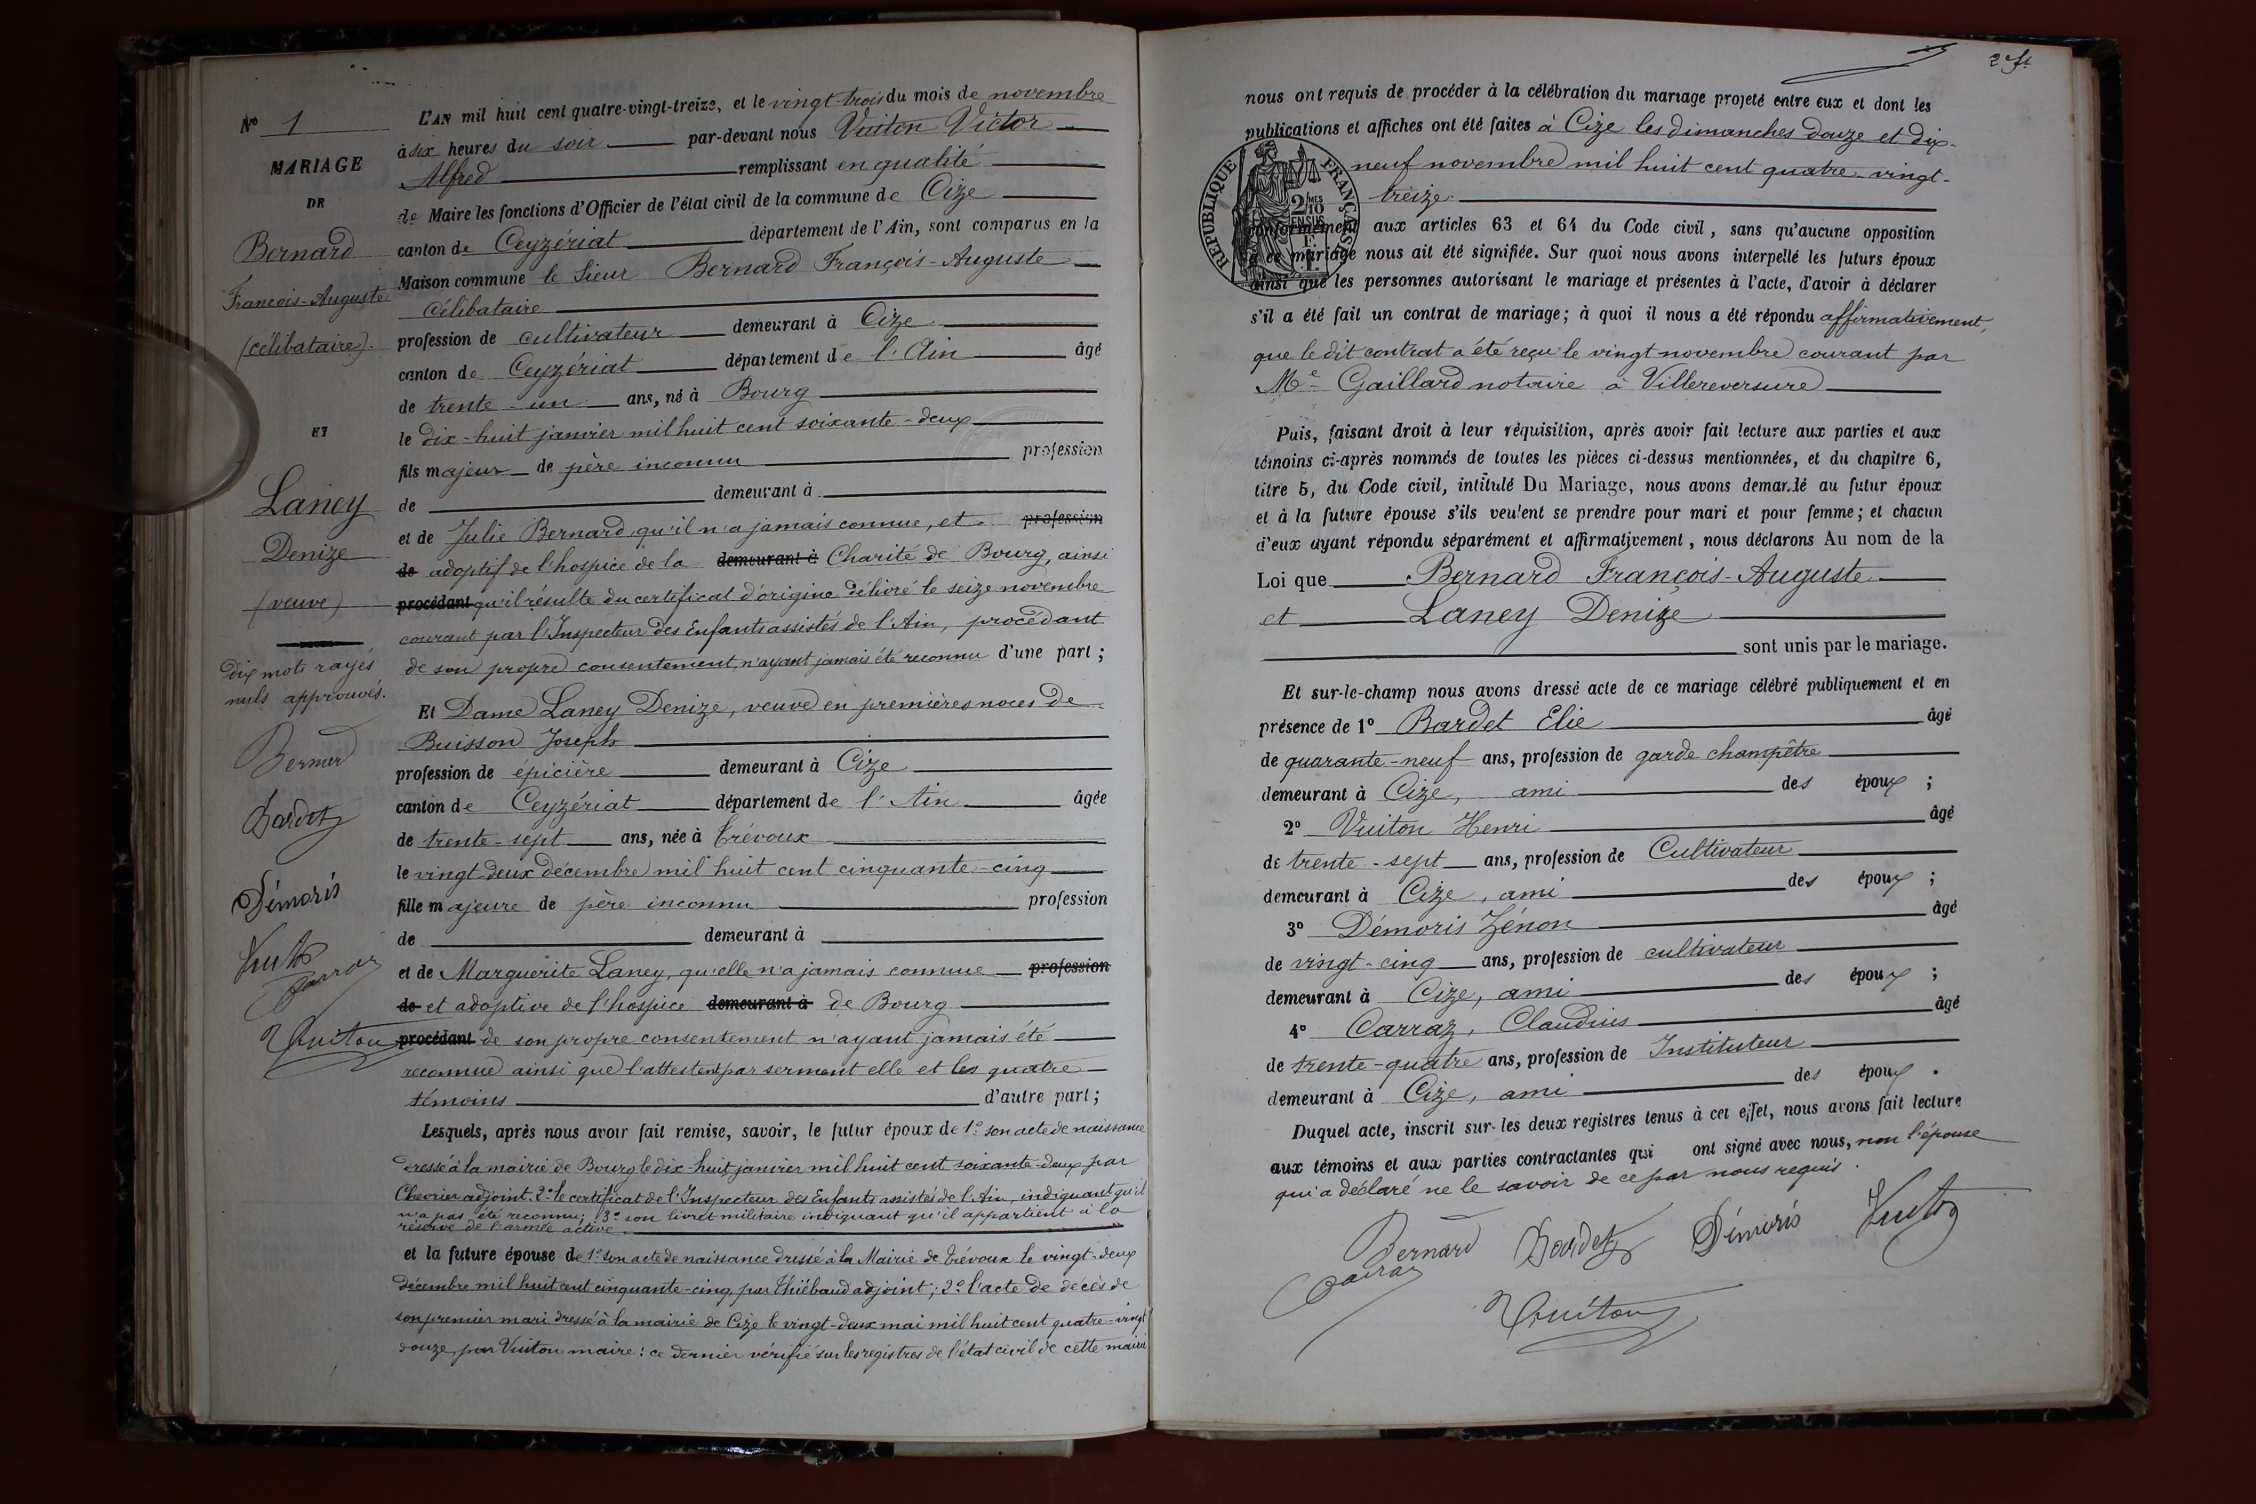 N° 1
MARIAGE
DE
Bernard
François-Auguste
(célibataire).
ET
Laney
Denize
(veuve)
Dix mots rayés
nuls approuvés.
Bernard
Bardet
Démoris
Vuiton
Carraz
Vuiton
L'AN mil huit cent quatre-vingt-treize, et le vingt trois du mois de novembre
à six heures du soir par-devant nous Vuiton Victor
Alfred remplissant en qualité
de Maire les fonctions d'Officier de l'état civil de la commune de Cize
canton de Ceyzériat département de l'Ain, sont comparus en la
Maison commune le Sieur Bernard François-Auguste
célibataire
profession de cultivateur demeurant à Cize
canton de Ceyzériat département de l'Ain âgé
de trente-un ans, né à Bourg
le dix-huit janvier mil huit cent soixante-deux
fils majeur de père inconnu profession
de demeurant à
et de Julie Bernard qu'il n'a jamais connue, et profession
de adoptif de l'hospice de la demeurant à Charité de Bourg, ainsi
procédant qu'il résulte du certificat d'origine délivré le seize novembre
courant par l'Inspecteur des Enfants assistés de l'Ain, procédant
de son propre consentement, n'ayant jamais été reconnu d'une part ;
Et Dame Laney Denize, veuve en premières noces de
Buisson Joseph
profession de épicière demeurant à Cize
canton de Ceyzériat département de l'Ain âgée
de trente-sept ans, née à Trévoux
le vingt deux décembre mil huit cent cinquante-cinq
fille majeure de père inconnu profession
de demeurant à
et de Marguerite Laney, qu'elle n'a jamais connue profession
de et adoptive de l'hospice demeurant à de Bourg
procédant de son propre consentement n'ayant jamais été
reconnue ainsi que l'attestent par serment elle et les quatre
témoins d'autre part ;
Lesquels, après nous avoir fait remise, savoir, le futur époux de 1° son acte de naissance
dressé à la mairie de Bourg le dix-huit janvier mil huit cent soixante-deux par
Chevrier adjoint. 2° le certificat de l'Inspecteur des Enfants assistés de l'Ain, indiquant qu'il
n'a pas été reconnu; 3° son livret militaire indiquant qu'il appartient à la
réserve de l'armée active.
et la future épouse de 1° son acte de naissance dressé à la Mairie de Trévoux le vingt-deux
décembre mil huit cent cinquante-cinq, par Thiébaud adjoint; 2° l'acte de décès de
son premier mari dressé à la mairie de Cize le vingt-deux mai mil huit cent quatre-vingt
douze, par Vuiton maire: ce dernier vérifié sur les registres de l'état civil de cette mairie
2e ft
nous ont requis de procéder à la célébration du mariage projeté entre eux et dont les
publications et affiches ont été faites à Cize les dimanches douze et dix-
neuf novembre mil huit cent quatre-vingt-
treize
RÉPUBLIQUE FRANÇAISE
2/10 MES
EN SUS
conformément aux articles 63 et 64 du Code civil, sans qu'aucune opposition
à ce mariage nous ait été signifiée. Sur quoi nous avons interpellé les futurs époux
ainsi que les personnes autorisant le mariage et présentes à l'acte, d'avoir à déclarer
s'il a été fait un contrat de mariage ; à quoi il nous a été répondu affirmativement,
que le dit contrat a été reçu le vingt novembre courant par
Me Gaillard notaire à Villereversure
Puis, faisant droit à leur réquisition, après avoir fait lecture aux parties et aux
témoins ci-après nommés de toutes les pièces ci-dessus mentionnées, et du chapitre 6,
titre 5, du Code civil, intitulé Du Mariage, nous avons demandé au futur époux
et à la future épouse s'ils veulent se prendre pour mari et pour femme ; et chacun
d'eux ayant répondu séparément et affirmativement, nous déclarons Au nom de la
Loi que Bernard François-Auguste
et Laney Denize
sont unis par le mariage.
Et sur-le-champ nous avons dressé acte de ce mariage célébré publiquement et en
présence de 1° Bardet Elie âgé
de quarante-neuf ans, profession de garde champêtre
demeurant à Cize, ami des époux ;
2° Vuiton Henri âgé
de trente-sept ans, profession de Cultivateur
demeurant à Cize, ami des époux ;
3° Démoris Zénon âgé
de vingt-cinq ans, profession de cultivateur
demeurant à Cize, ami des époux ;
4° Carraz, Claudius âgé
de trente-quatre ans, profession de Instituteur
demeurant à Cize, ami des époux.
Duquel acte, inscrit sur les deux registres tenus à cet effet, nous avons fait lecture
aux témoins et aux parties contractantes qui ont signé avec nous, non l'épouse
qui a déclaré ne le savoir de ce par nous requis.
Bernard Bardet Démoris Vuiton
Carraz
Vuiton